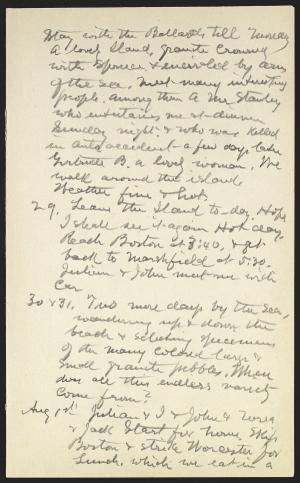 Stay with the Ballards till Tuesday
A lovely Island, granite crowned
with Spruces & encircled by arms
of the Sea. Meet many interesting
people, among them a Mr Stanley
who entertains me at dinner
Sunday night & who was killed
in auto accident a few days later
Gertrude B. a lovely woman. We
walk around the island.
Weather fine & hot.
29. Leave the Island to-day. Hope
I shall see it again Hot day.
Reach Boston at 3:40, & get
back to Marshfield at 5:30.
Julian & John meet me with
Car
30 & 31. Two more days by the Sea,
wandering up & down the
beach & selecting specimens
of the many colored large &
small granite pebbles. Where
does all this endless variety
come from?
Aug 1st. Julian & I & John &
& Jack Start for home. Skip
Boston & strike Worcester for
Lunch, which we eat in a